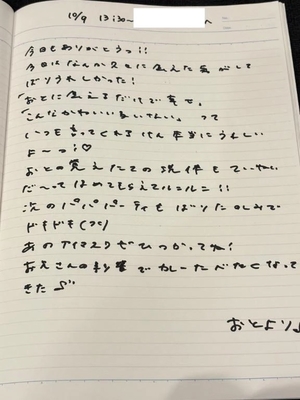 10/9 13:30~
今日もありがとうっ!!
今日はなんか久々に会えた気がして
ばりうれしかった!
「おとに会えるだけで幸せ。
「こんなかわいい
いつも言ってくれるけん本当にうれしい
よ〜っ!♡
おとの覚えたての洗体もていねい
だ〜ってほめてもらえてルンルン!!
次のパパパーティもばりたのしみで
ドキドキ
あのアイマスクぜひつかってね!
お兄さんの影響でカレーたべたくなって
きた
おとより♪